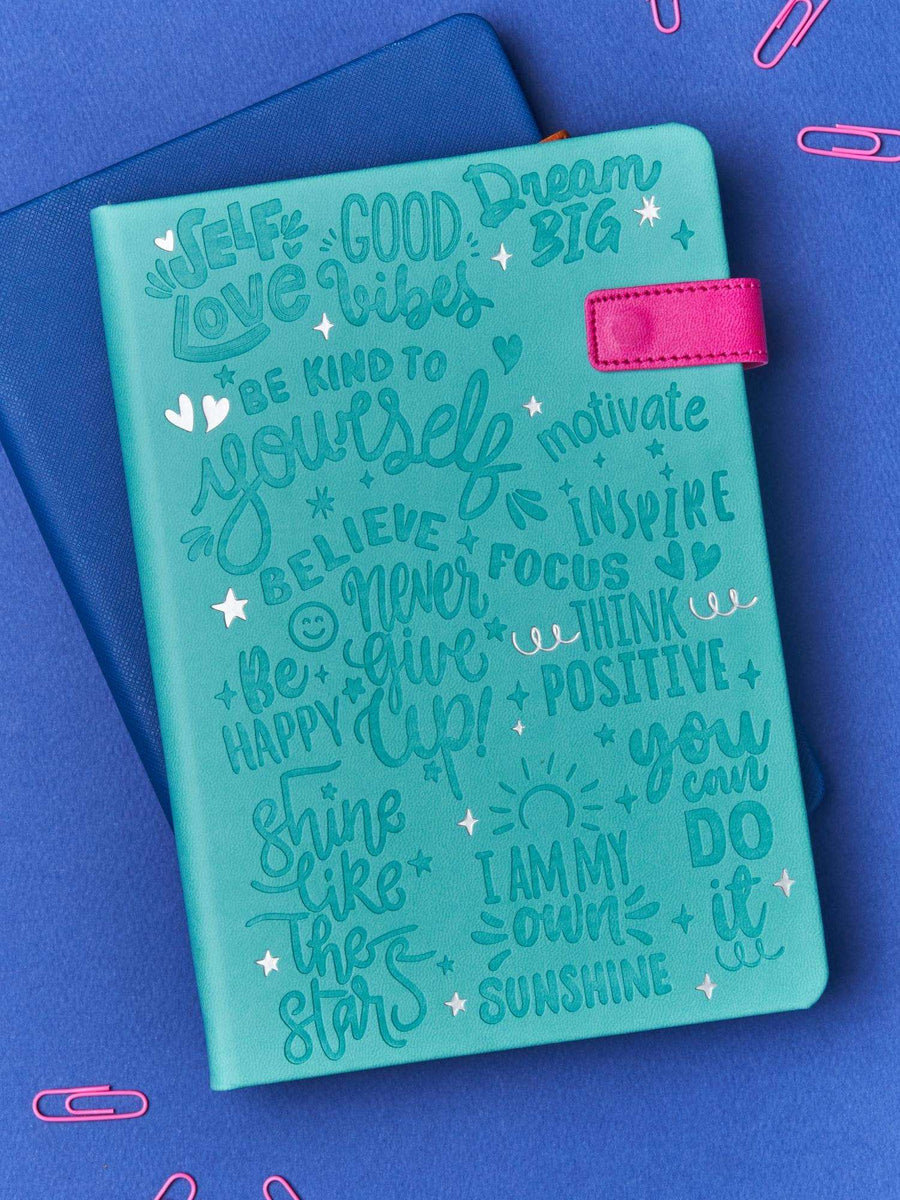 SELF
Love
GOOD
Vibes
Dream
BIG
BE KIND TO
yourself
motivate
INSPIRE
BELIEVE
FOCUS
Never
give
up!
THINK
POSITIVE
Be
HAPPY
you
can
DO
it
Shine
like
the
stars
I AM MY
own
SUNSHINE